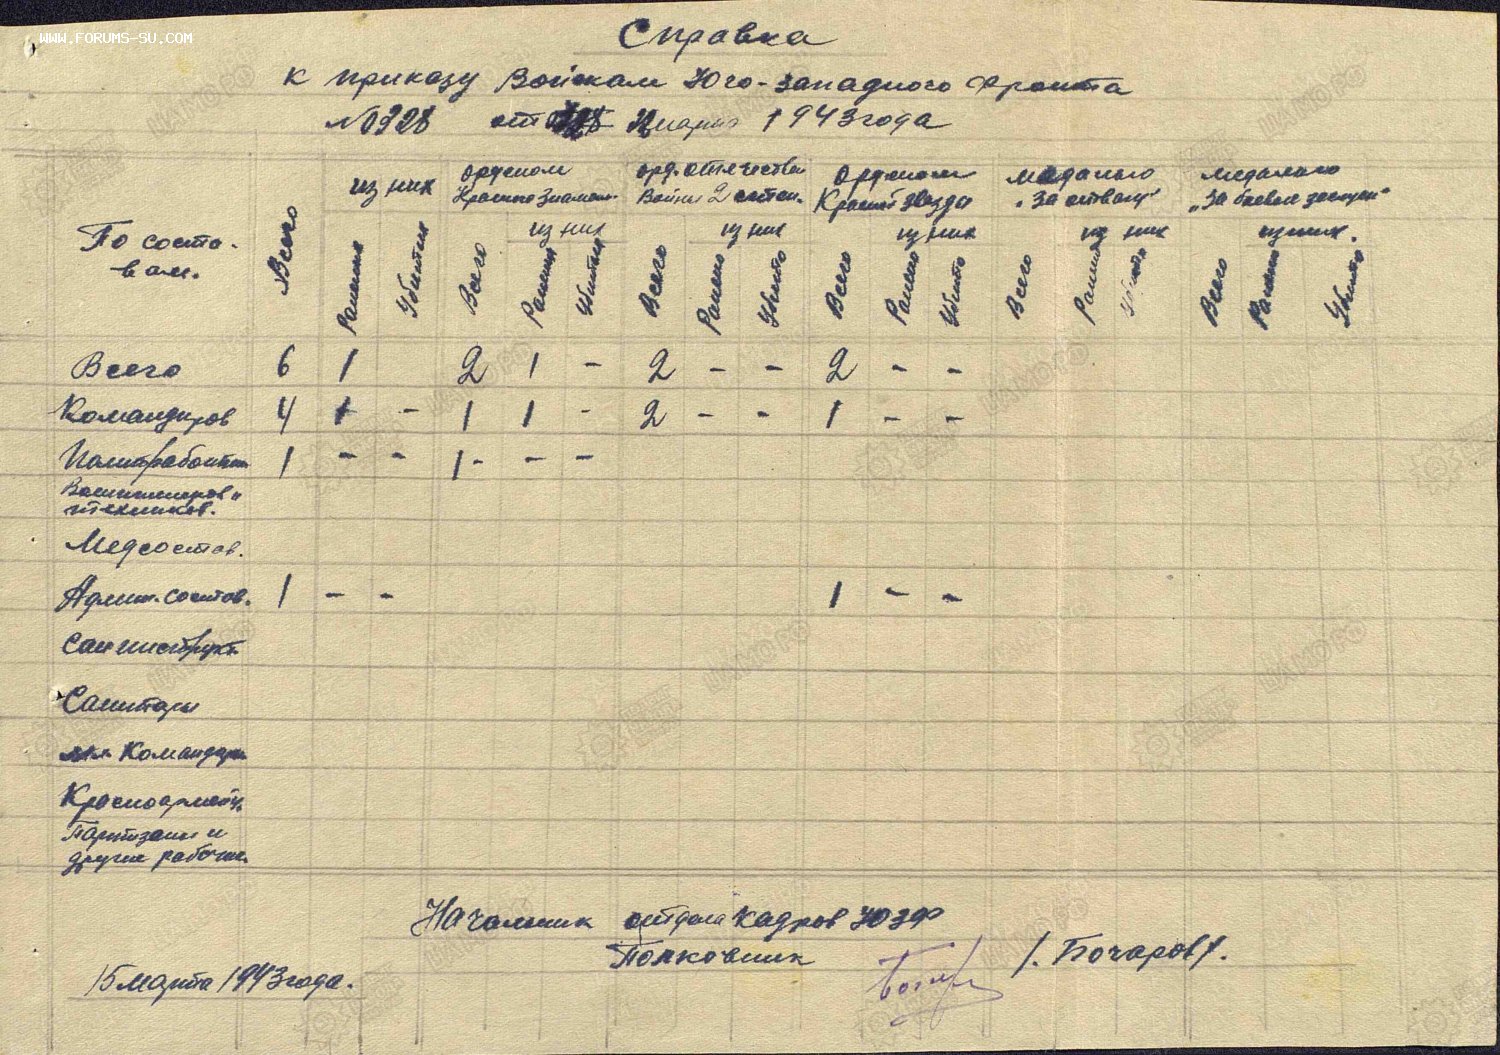 WWW.FORUMS-SU.COM
Справка
к приказу Войскам Юго-западного Фронта
№ 0928 от марта 1943 года
По соста-
вам.
Всего
из них
Ранения
Убития
орденом
Красное Знамя
из них
Всего
Ранения
Убития
орд. отечествен
Войны 2 степ.
из них
Всего
Ранено
Убито
орденом
Красной звезда
из них
Всего
Ранено
Убито
медалью
"За отвагу"
из них
Всего
медалью
"За боевые заслуги"
из них.
Всего
Ранено
Убито
Всего 6 1 2 1 - 2 - - 2 - -
Командиров 4 1 - 1 1 - 2 - - 1 - -
Политработник 1 - - 1 - - -
Военинженеров и
техников.
Медсостав.
Админ. состав. 1 - - 1 - -
Санинструкт.
Санитары
мл. Командиры
Красноармейц.
Партизаны и
другие рабочие.
Начальник отдела кадров ЮЗФ
Полковник /. Бочаров /.
15 марта 1943 года.
ЦАМО РФ